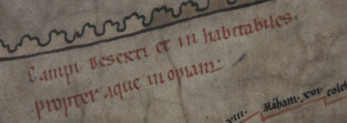 Campi deserti et in habitabiles.
propter aque inopiam.
xiii. Maham. xvi